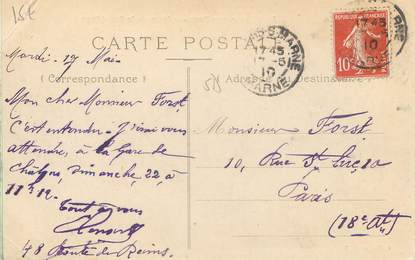 15€
CARTE POSTALE
(Correspondance)
Adresse du Destinataire)
RÉPUBLIQUE FRANÇAISE
10
MARNE
17 45
17-5
10
MARNE
Mardi - 17 Mai -
Mon cher Monsieur Forst
C'est entendu - J'irai vous
attendre, à la Gare de
Châlons, Dimanche, 22, à
11h 12.
Tout à vous
48 Route de Reims
Monsieur Forst
10, Rue
Paris
(18e Att)